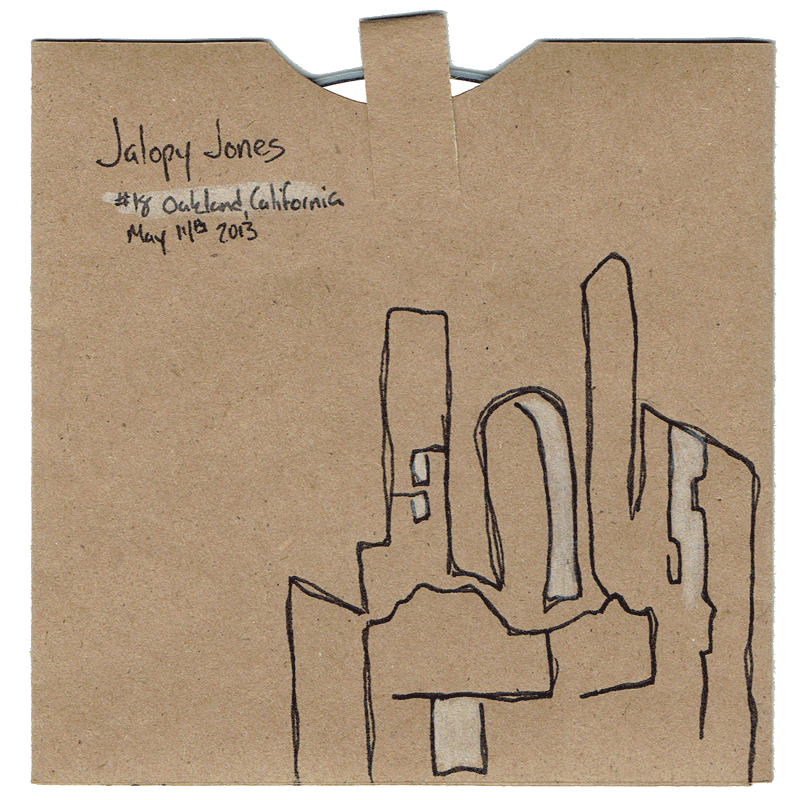 Jalopy Jones
#18 Oakland, California
May 11th 2013